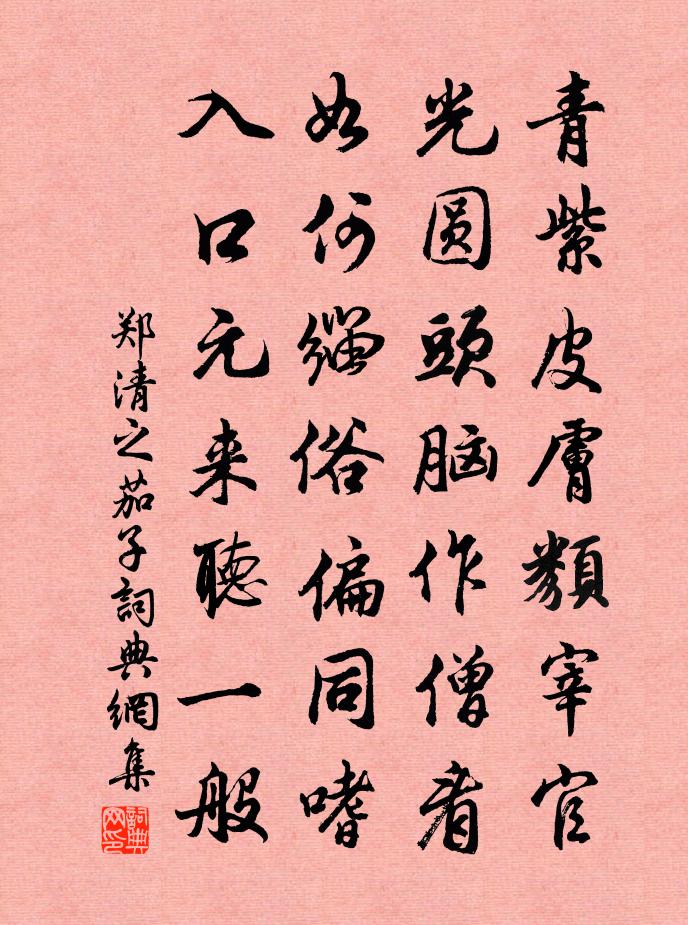 青紫皮膚類宰官
光圓頭腦作僧看
如何緇俗偏同嗜
入口元来聽一般
郑清之茄子詞典網集
詞典网印